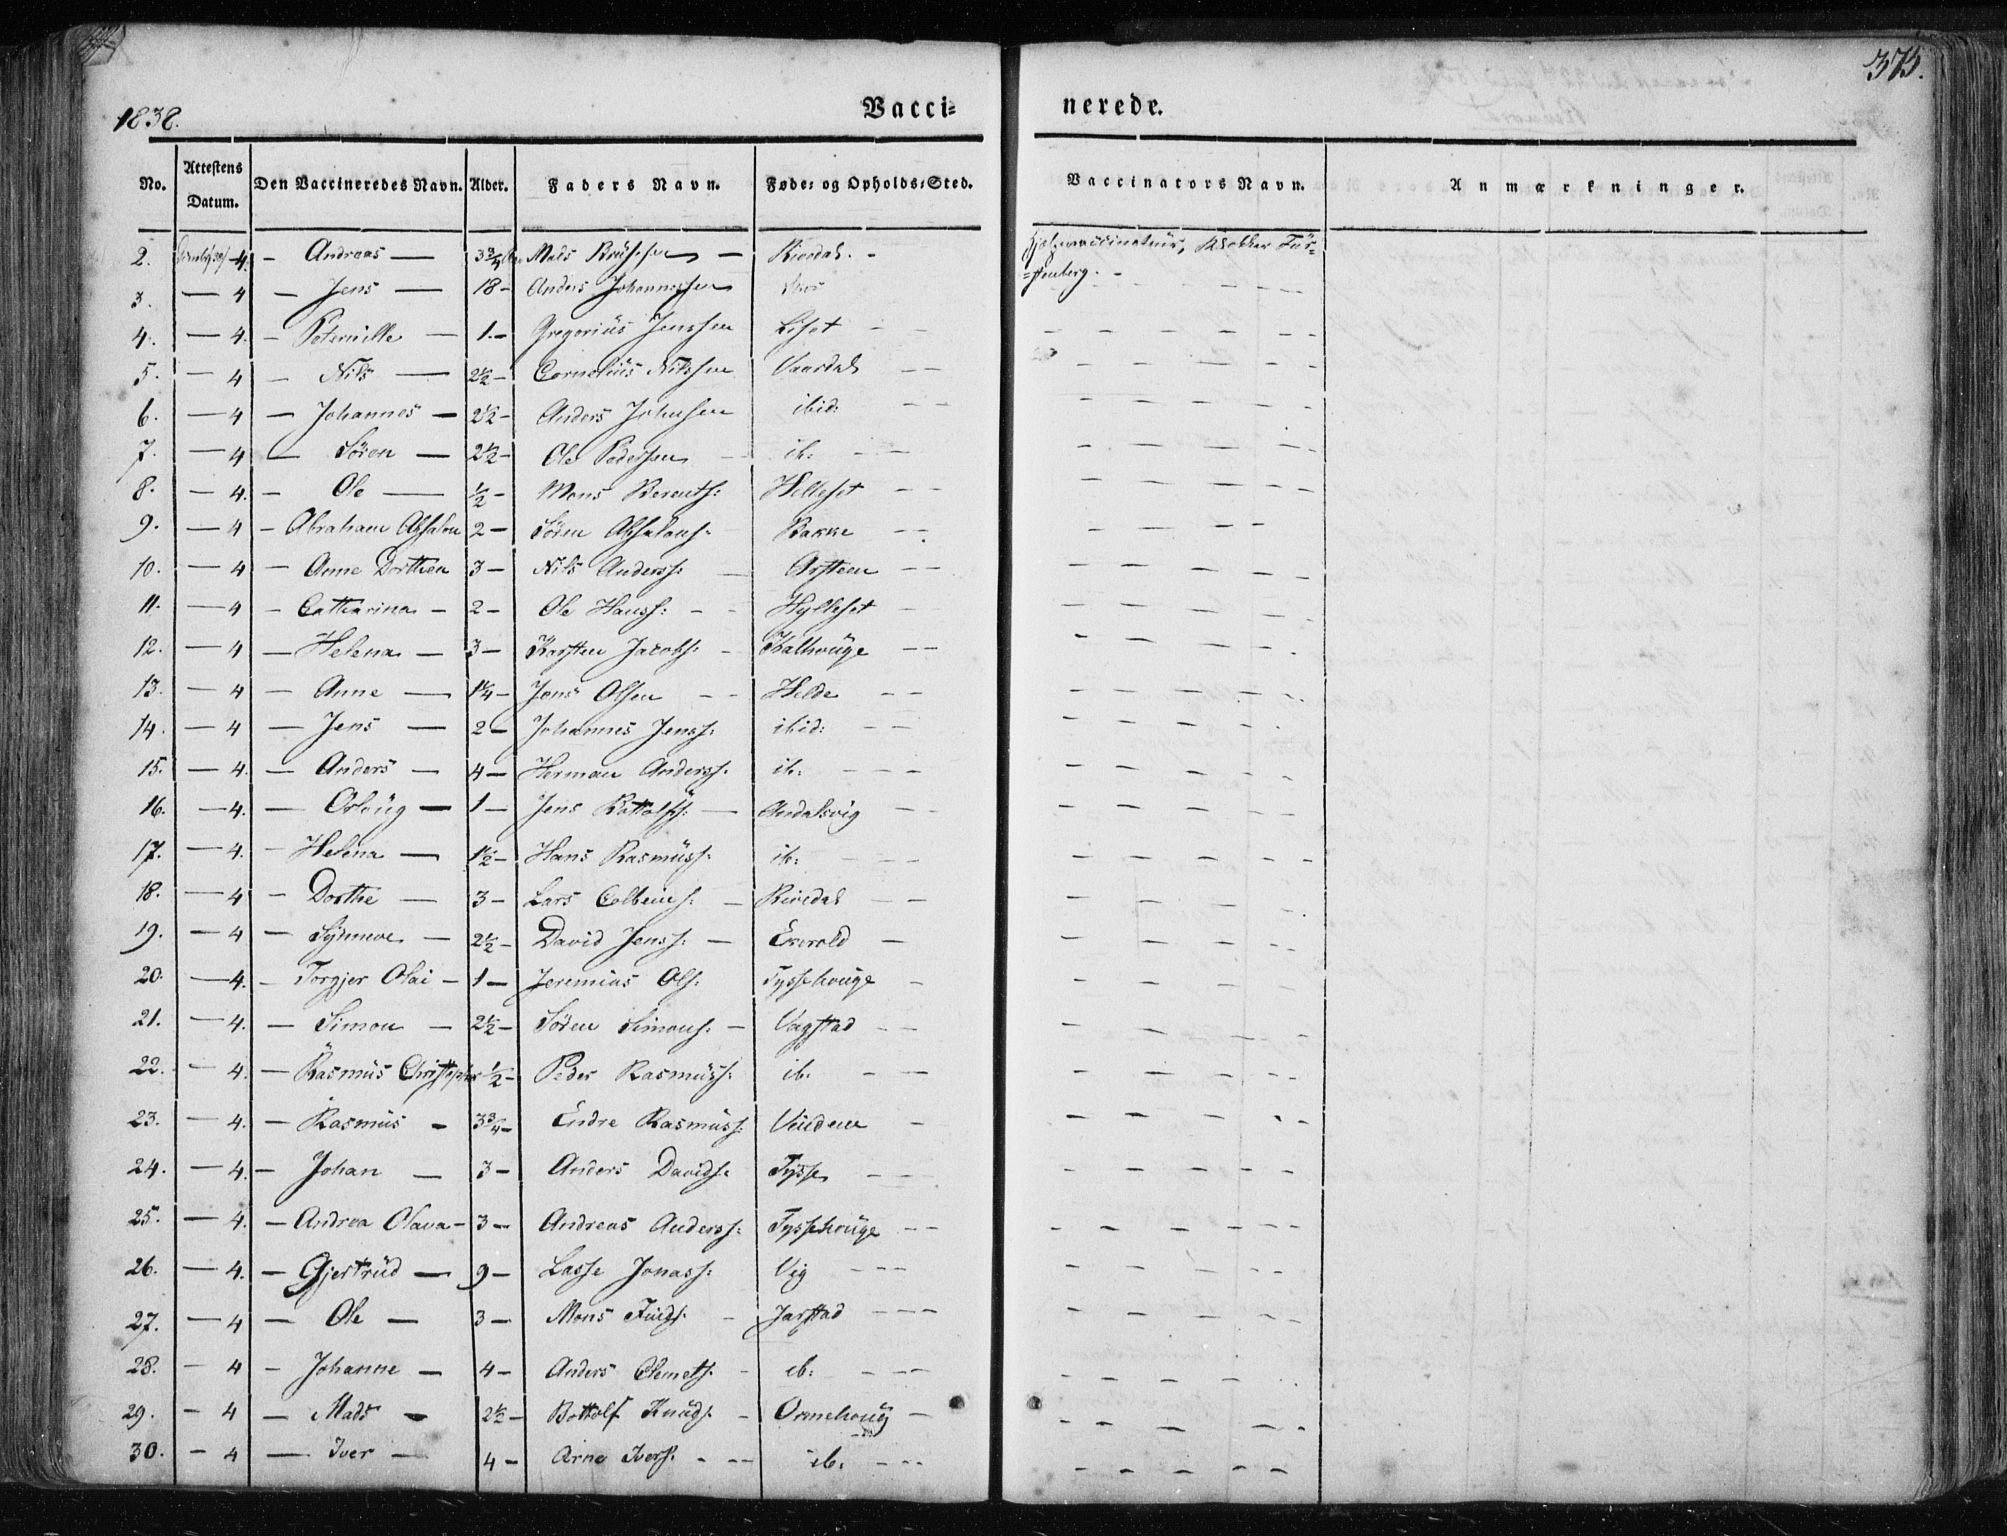 375.
1838. Vacci- nerede.
No. Attestens Datum. Den Vaccineredes Navn. Alder. Faders Navn. Føde- og Opholds-Sted. Vaccinators Navn. Anmærkninger.
2. 4. - Andreas — 3 3/4 Mads — Riisdal. - Hjelpevaccinateur, Klokker Für-
=stenberg. -
3. — 4 — Jens — 18 - Anders Johannessen
4. — 4. — Peternille — 1. - Gregorius Jenssen Liset - -
5. — 4 - Nils — 2 1/2 - Cornelius Nilssen Vaardal - -
6. — 4 — Johannes — 2 1/2 - Anders Johnsen ibid: - -
7. — 4 — Søren — 2 1/2 - Ole Pederssen - ib: - -
8. - 4. - Ole — 1/2 - Mons Berents: Helleset - -
9. - 4 - Abraham Absalon 2 - Søren Absalons: Bakke - -
10. - 4 - Anne Dorthea 3 - Nils Anderss: — Arsteen - -
11. — 4 - Catharina - 2 - Ole Hanss: - - Hylleset -
12. - 4 - Helena - 3 - Karsten Jacobs: - Kalhouge - -
13. - 4 - Anne — 1 1/4 - Jens Olsen - - Helde - -
14. - 4 — Jens — 2 - Johannes Jenss: ibid: - -
15. — 4. — Anders - 4 - Herman Anderss: ib: - - -
16. - 4. — Orloug — 1 - Jens Bottolfs: — Aadalsvig - -
17. - 4. - Helena — 1 1/2 - Hans Rasmuss: ib: - - -
18. — 4 - Dorthe — 3 - Lars Colbeins: — Riisdal - -
19. - 4 - Synneve - 2 1/2 - David Jenss: — -
20. — 4. - Torgjer Olai - 1 - Jeremias Ols: Tyssehouge -
21. — 4. - Simon - 2 1/2 - Søren Simons: - Vagstad - -
22. - 4. - Rasmus Christopher 1/2 - Peder Rasmuss: ib: - - -
23. - 4. - Rasmus - 3 3/4 - Endre Rasmuss: -
24. - 4. - Johan — 3 - Anders Davids: Tysse - - -
25. - 4. - Andrea Olava - 3 - Andreas Anderss: Tyssehouge - -
26. — 4. - Gjertrüd — 9 - Lasse Jonass: Vig - - -
27. — 4 — Ole — 3 - Mons - Jarstad - - -
28. - 4 - Johanne — 4 - Anders Clemets: - ib: - - -
29. - 4 — Mads - 2 1/2 - Bottolf Knuds: - Ormehoug -
30. - 4 — Iver — 4 - Arne Ivers: - - - ib: - - -